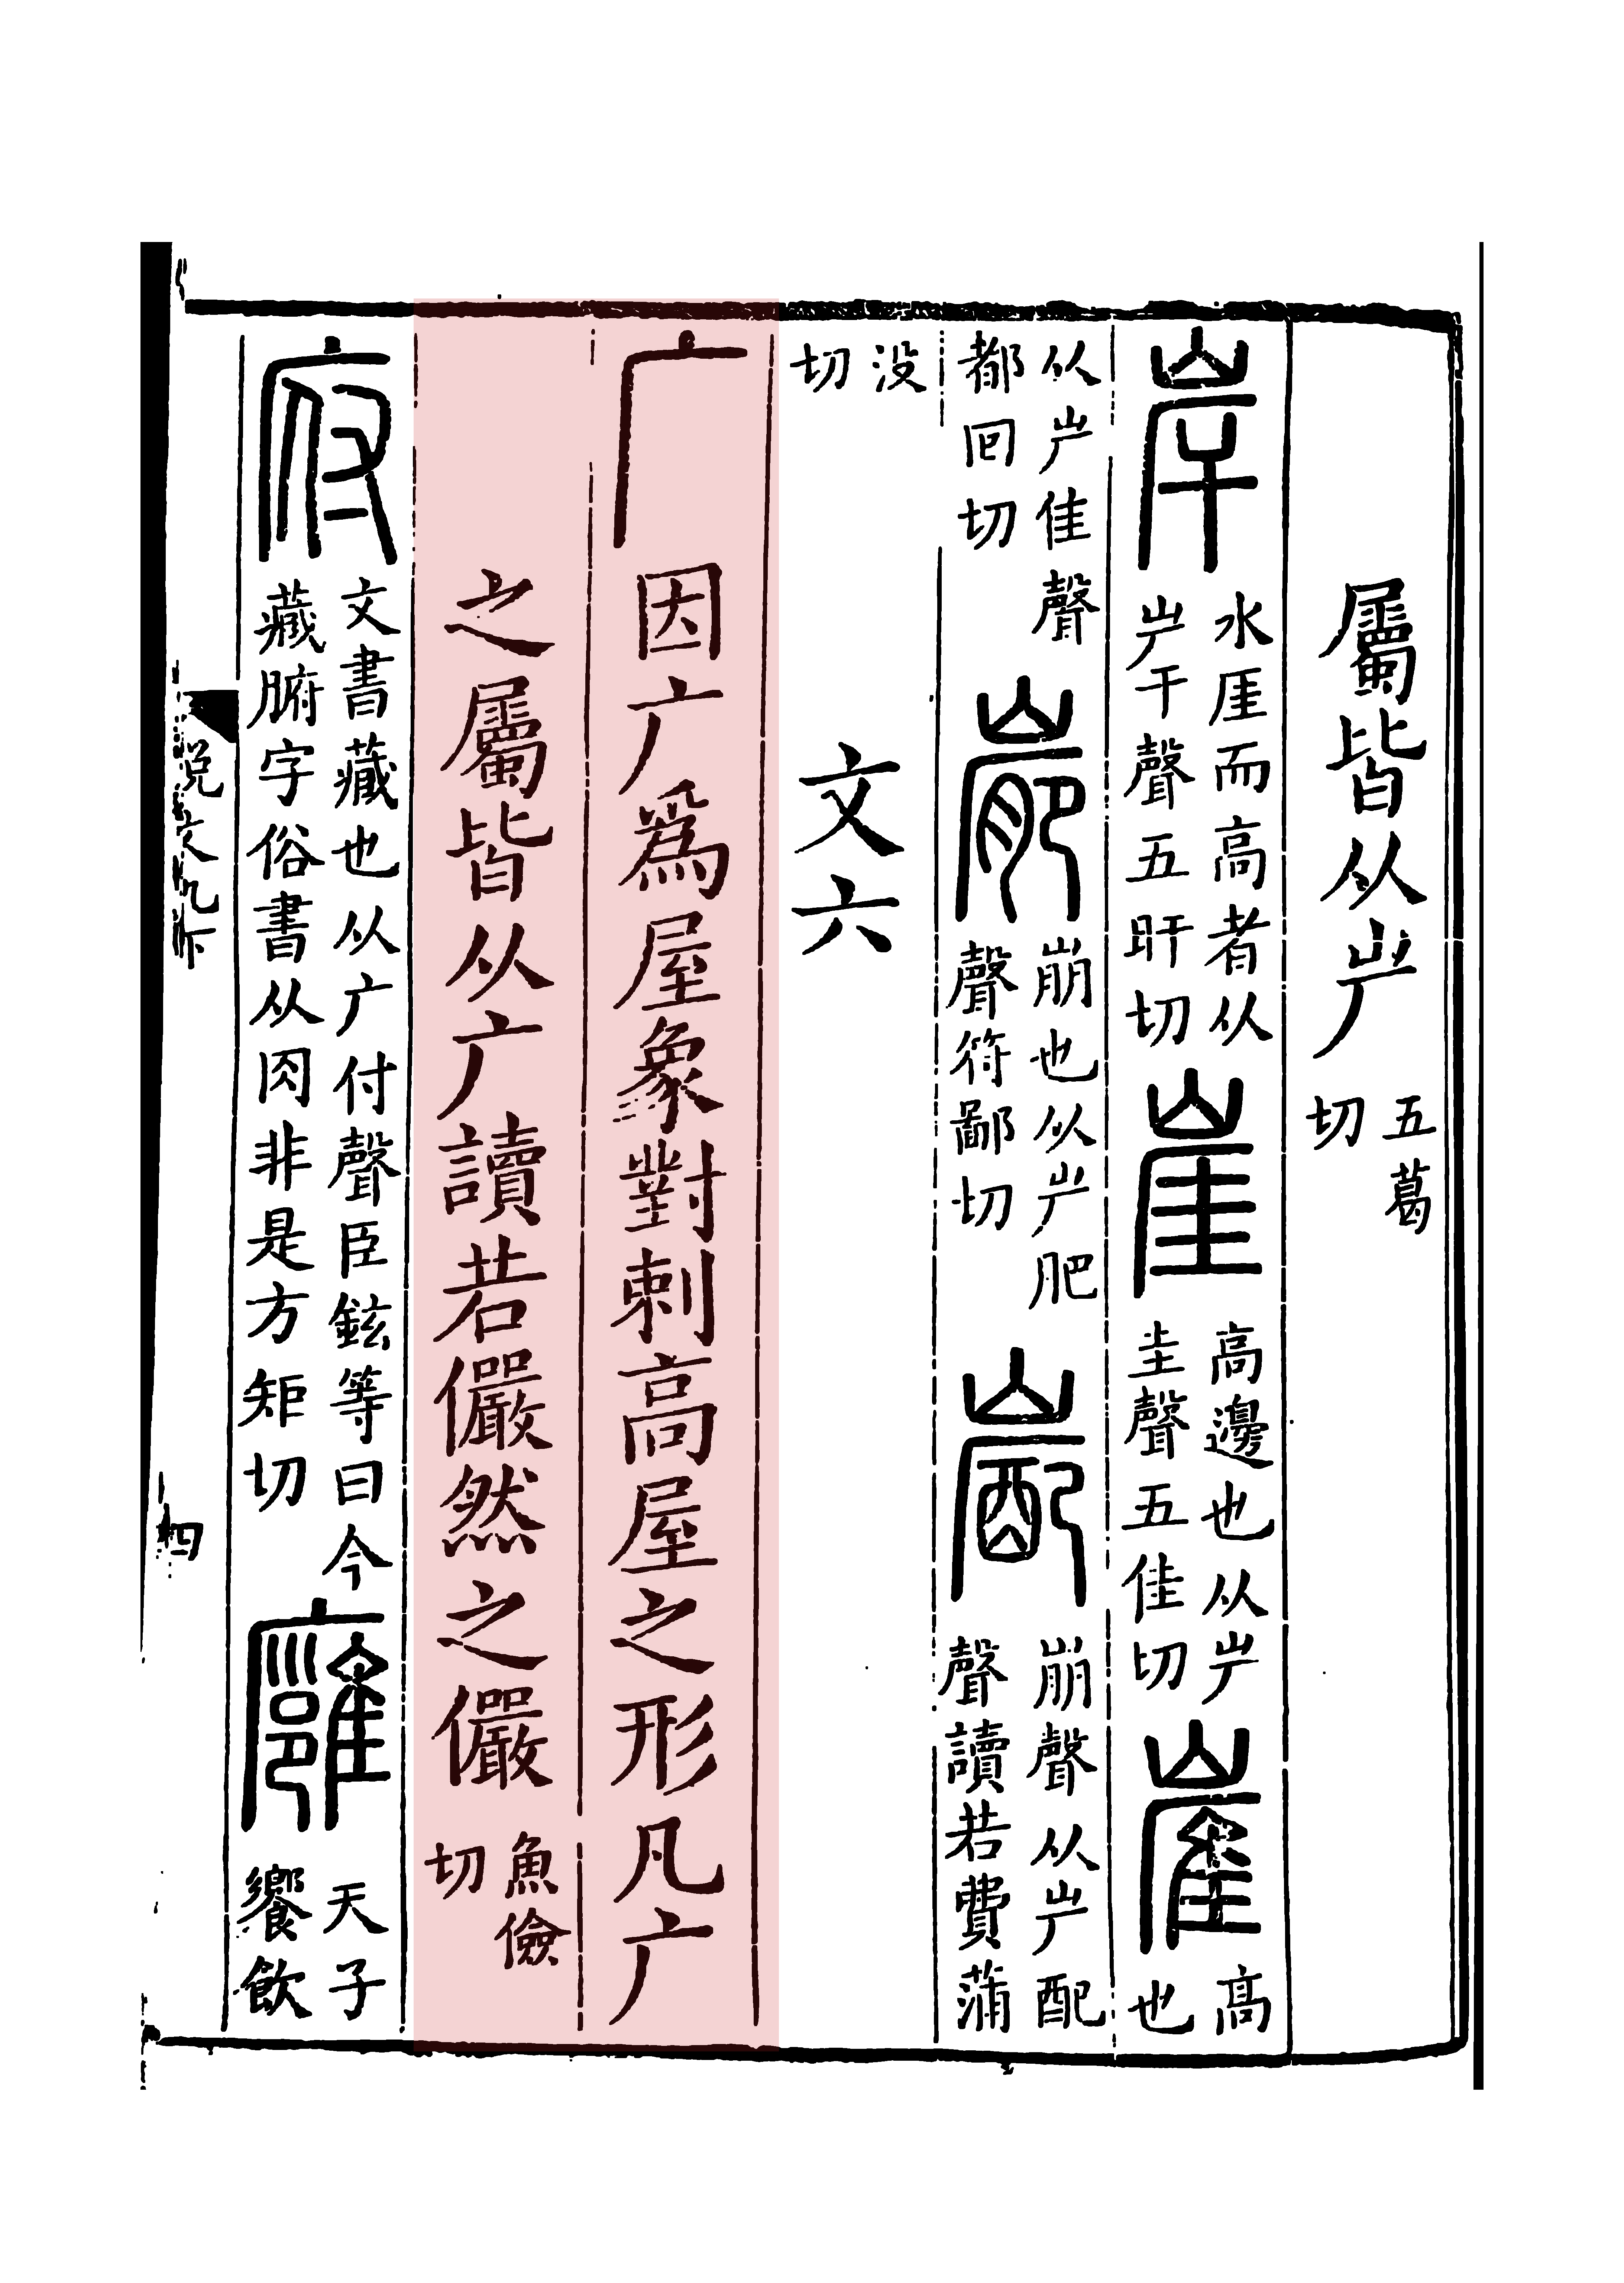 屬皆从屵五葛切
岸水厓而高者从屵干聲五旰切崖高邊也从屵圭聲五佳切高也
从屵隹聲都回切崩也从屵肥聲符鄙切嶏崩聲从屵配聲讀若費蒲
没切文六
广因广爲屋象對刺高屋之形凡广
之屬皆从广讀若儼然之儼魚儉切
府文書藏也从广付聲臣鉉等曰今藏腑字俗書从肉非是方矩切廱天子饗飲
說文九下
四